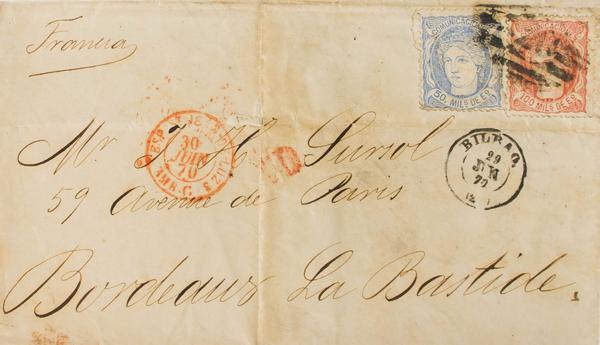 Francia
COMUNICACIONES
50. MILS DE E.º
COMUNICACIONES
100 MILS DE E.º
30
JUIN
70
AMB. C.
PD
BILBAO
29
JUN
70
Mr. J. H. Sursol
59 Avenue de Paris
Bordeaux La Bastide.